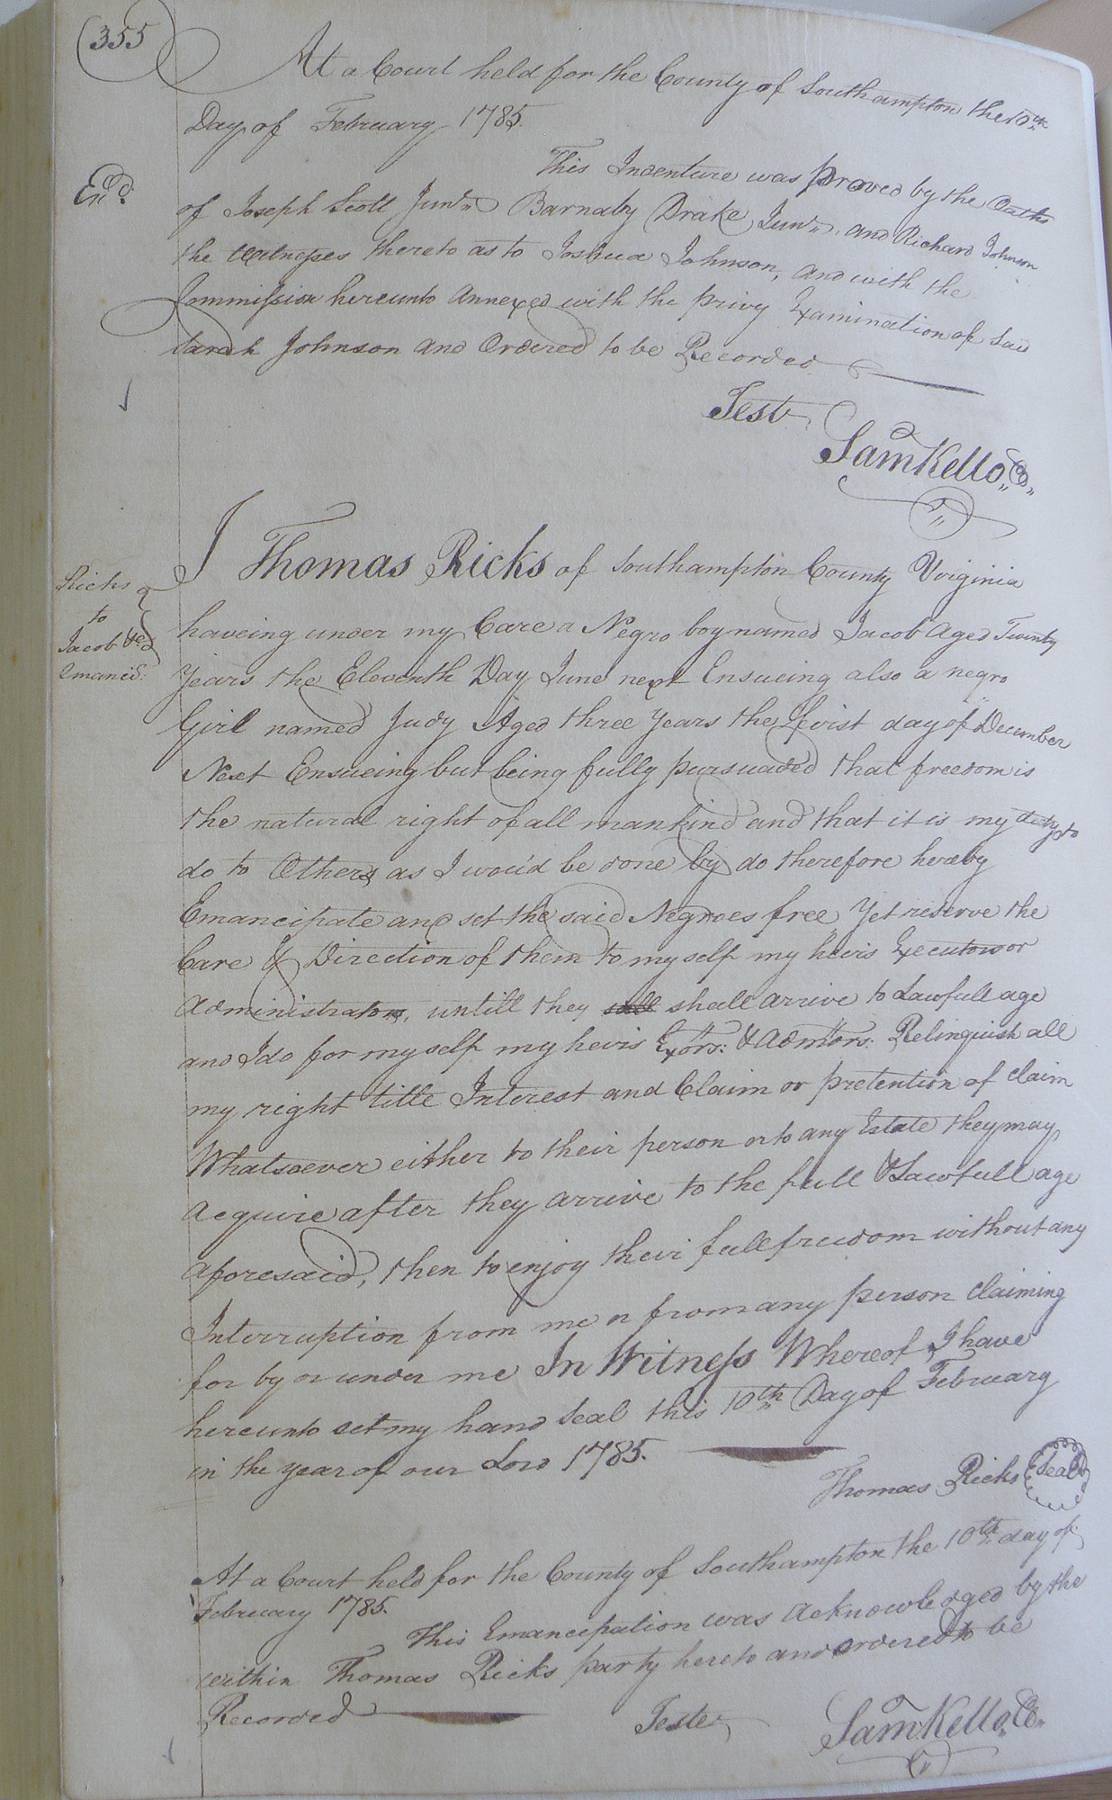 355
At a Court held for the County of Southampton the 10th
Day of February 1785.
This Indenture was proved by the Oaths
Exd.
of Joseph Scott Junr. Barnaby Drake Junr. and Richard Johnson
the Witnesses thereto as to Joshua Johnson, and with the
Commission hereunto annexed with the privy Examination of Said
Sarah Johnson and Ordered to be Recorded
Test
Sam Kello, C.
I Thomas Ricks of Southampton County Virginia
Ricks
to
Jacob &c
Emancid:
haveing under my Care a Negro boy named Jacob Aged Twenty
Years the Eleventh Day June next Ensueing also a negro
Girl named Judy Aged three Years the first day of December
Next Ensueing but being fully pursuaded that freedom is
the natural right of all mankind and that it is my duty to
do to Others as I wou'd be done by do therefore hereby
Emancipate and set the said Negroes free, Yet reserve the
Care & Direction of them to my self my heirs Executors or
Administrators, untill they shall arrive to Lawfull age
and I do for my self my heirs Exors: & Admors: Relinquish all
my right title Interest and Claim or pretention of claim
Whatsoever either to their person or to any Estate they may
acquire after they arrive to the full & Lawfull age
aforesaid, then to enjoy their full freedom without any
Interruption from me or from any person claiming
for by or under me In Witness Whereof I have
hereunto set my hand Seal this 10th Day of February
in the year of our Lord 1785.
Thomas Ricks Seal
At a Court held for the County of Southampton the 10th day of
February 1785.
This Emancipation was acknowledged by the
within Thomas Ricks party hereto and ordered to be
Recorded
Teste
Sam Kello, C.